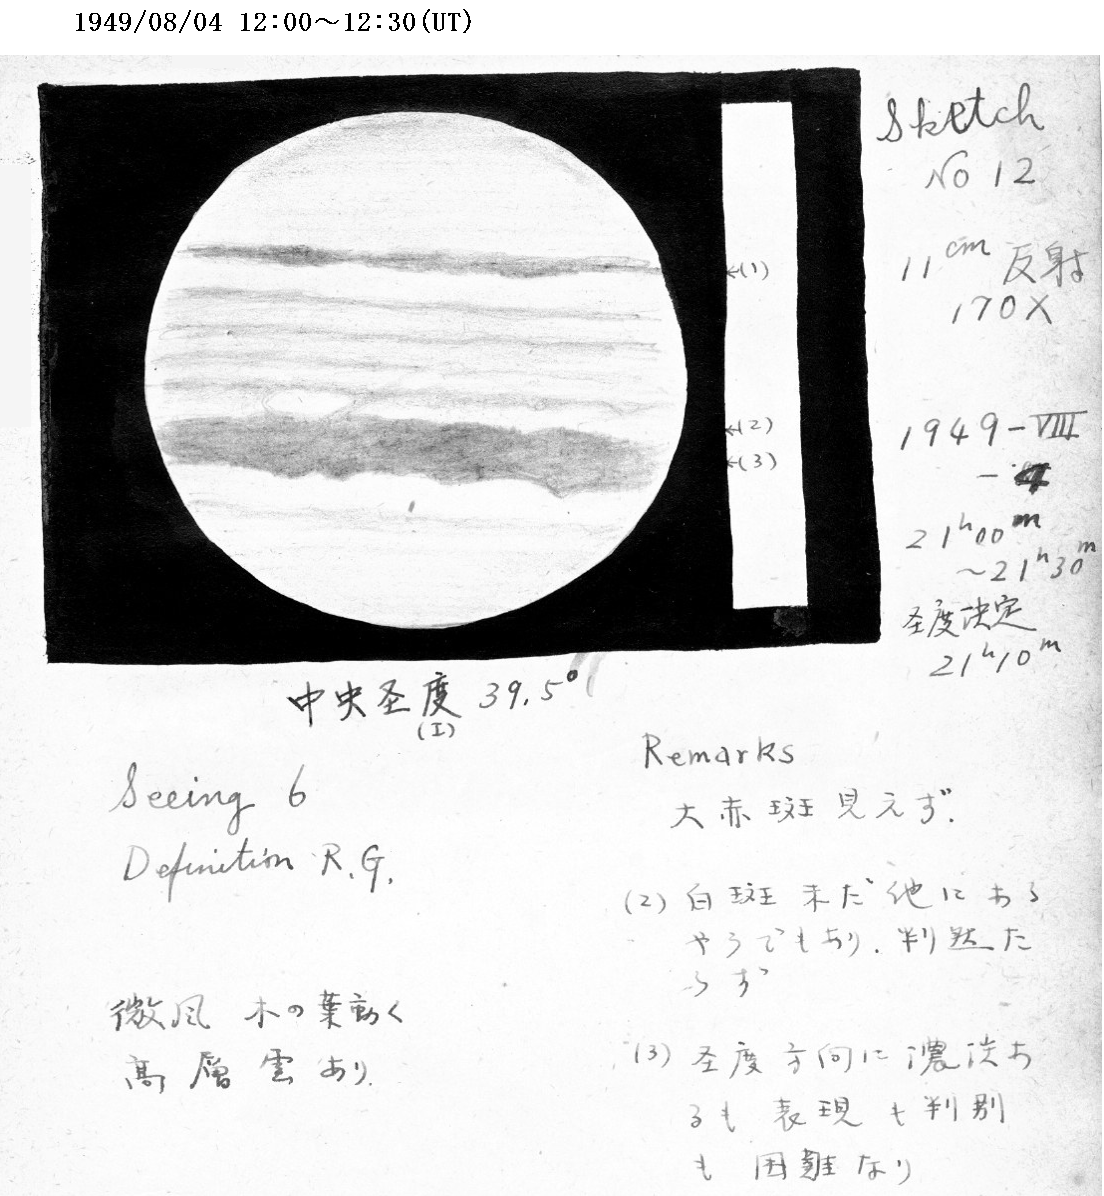 1949/08/04 12:00～12:30(UT)
Sketch
No 12
11cm 反射
170X
←(1)
←(2)
←(3)
1949-VIII
-4
21h00m
～21h30m
圣度决定
21h10m
中央圣度 39.5°
(I)
Seeing 6
Definition R.G.
微風 木の葉動く
高層雲あり.
Remarks
大赤斑見えず.
(2) 白斑未だ他にある
やうでもあり.判然た
らず
(3) 圣度方向に濃淡あ
るも表現も判別
も困難なり